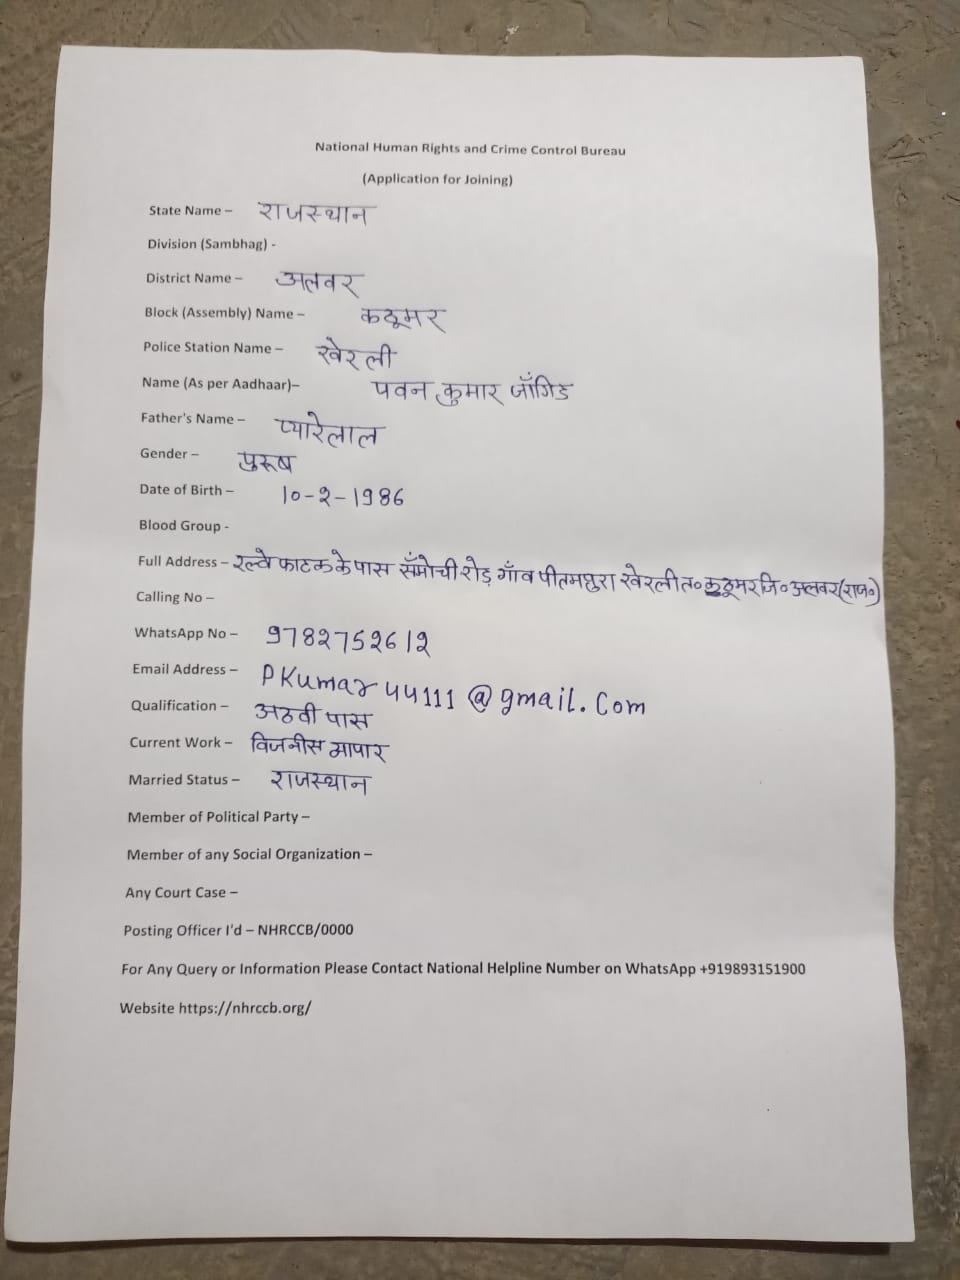 National Human Rights and Crime Control Bureau
(Application for Joining)
State Name – राजस्थान
Division (Sambhag) -
District Name – अलवर
Block (Assembly) Name – कठूमर
Police Station Name – खेरली
Name (As per Aadhaar)– पवन कुमार जाँगिड
Father's Name – प्यारेलाल
Gender – पुरूष
Date of Birth – 10-2-1986
Blood Group -
Full Address – रेल्वे फाटक के पास सँमोची रोड़ गाँव पीतमपुरा खेरली त० कठूमर जि० अलवर (राज०)
Calling No –
WhatsApp No – 9782752612
Email Address – PKumar44111@gmail.Com
Qualification – अठवी पास
Current Work – विजनीस मापार
Married Status – राजस्थान
Member of Political Party –
Member of any Social Organization –
Any Court Case –
Posting Officer I'd – NHRCCB/0000
For Any Query or Information Please Contact National Helpline Number on WhatsApp +919893151900
Website https://nhrccb.org/